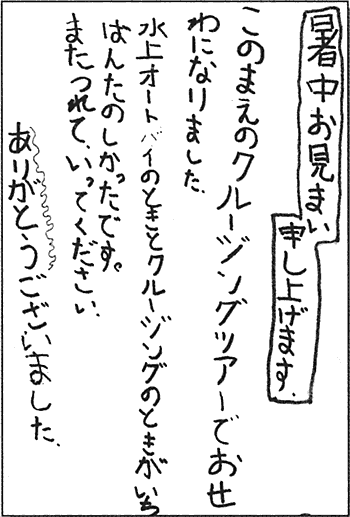 暑中お見まい
申し上げます.
このまえのクルージングツアーでお世
わになりました.
水上オートバイのときとクルージングのときがいち
ばんたのしかったです。
またつれて、いってください.
ありがとうございました.